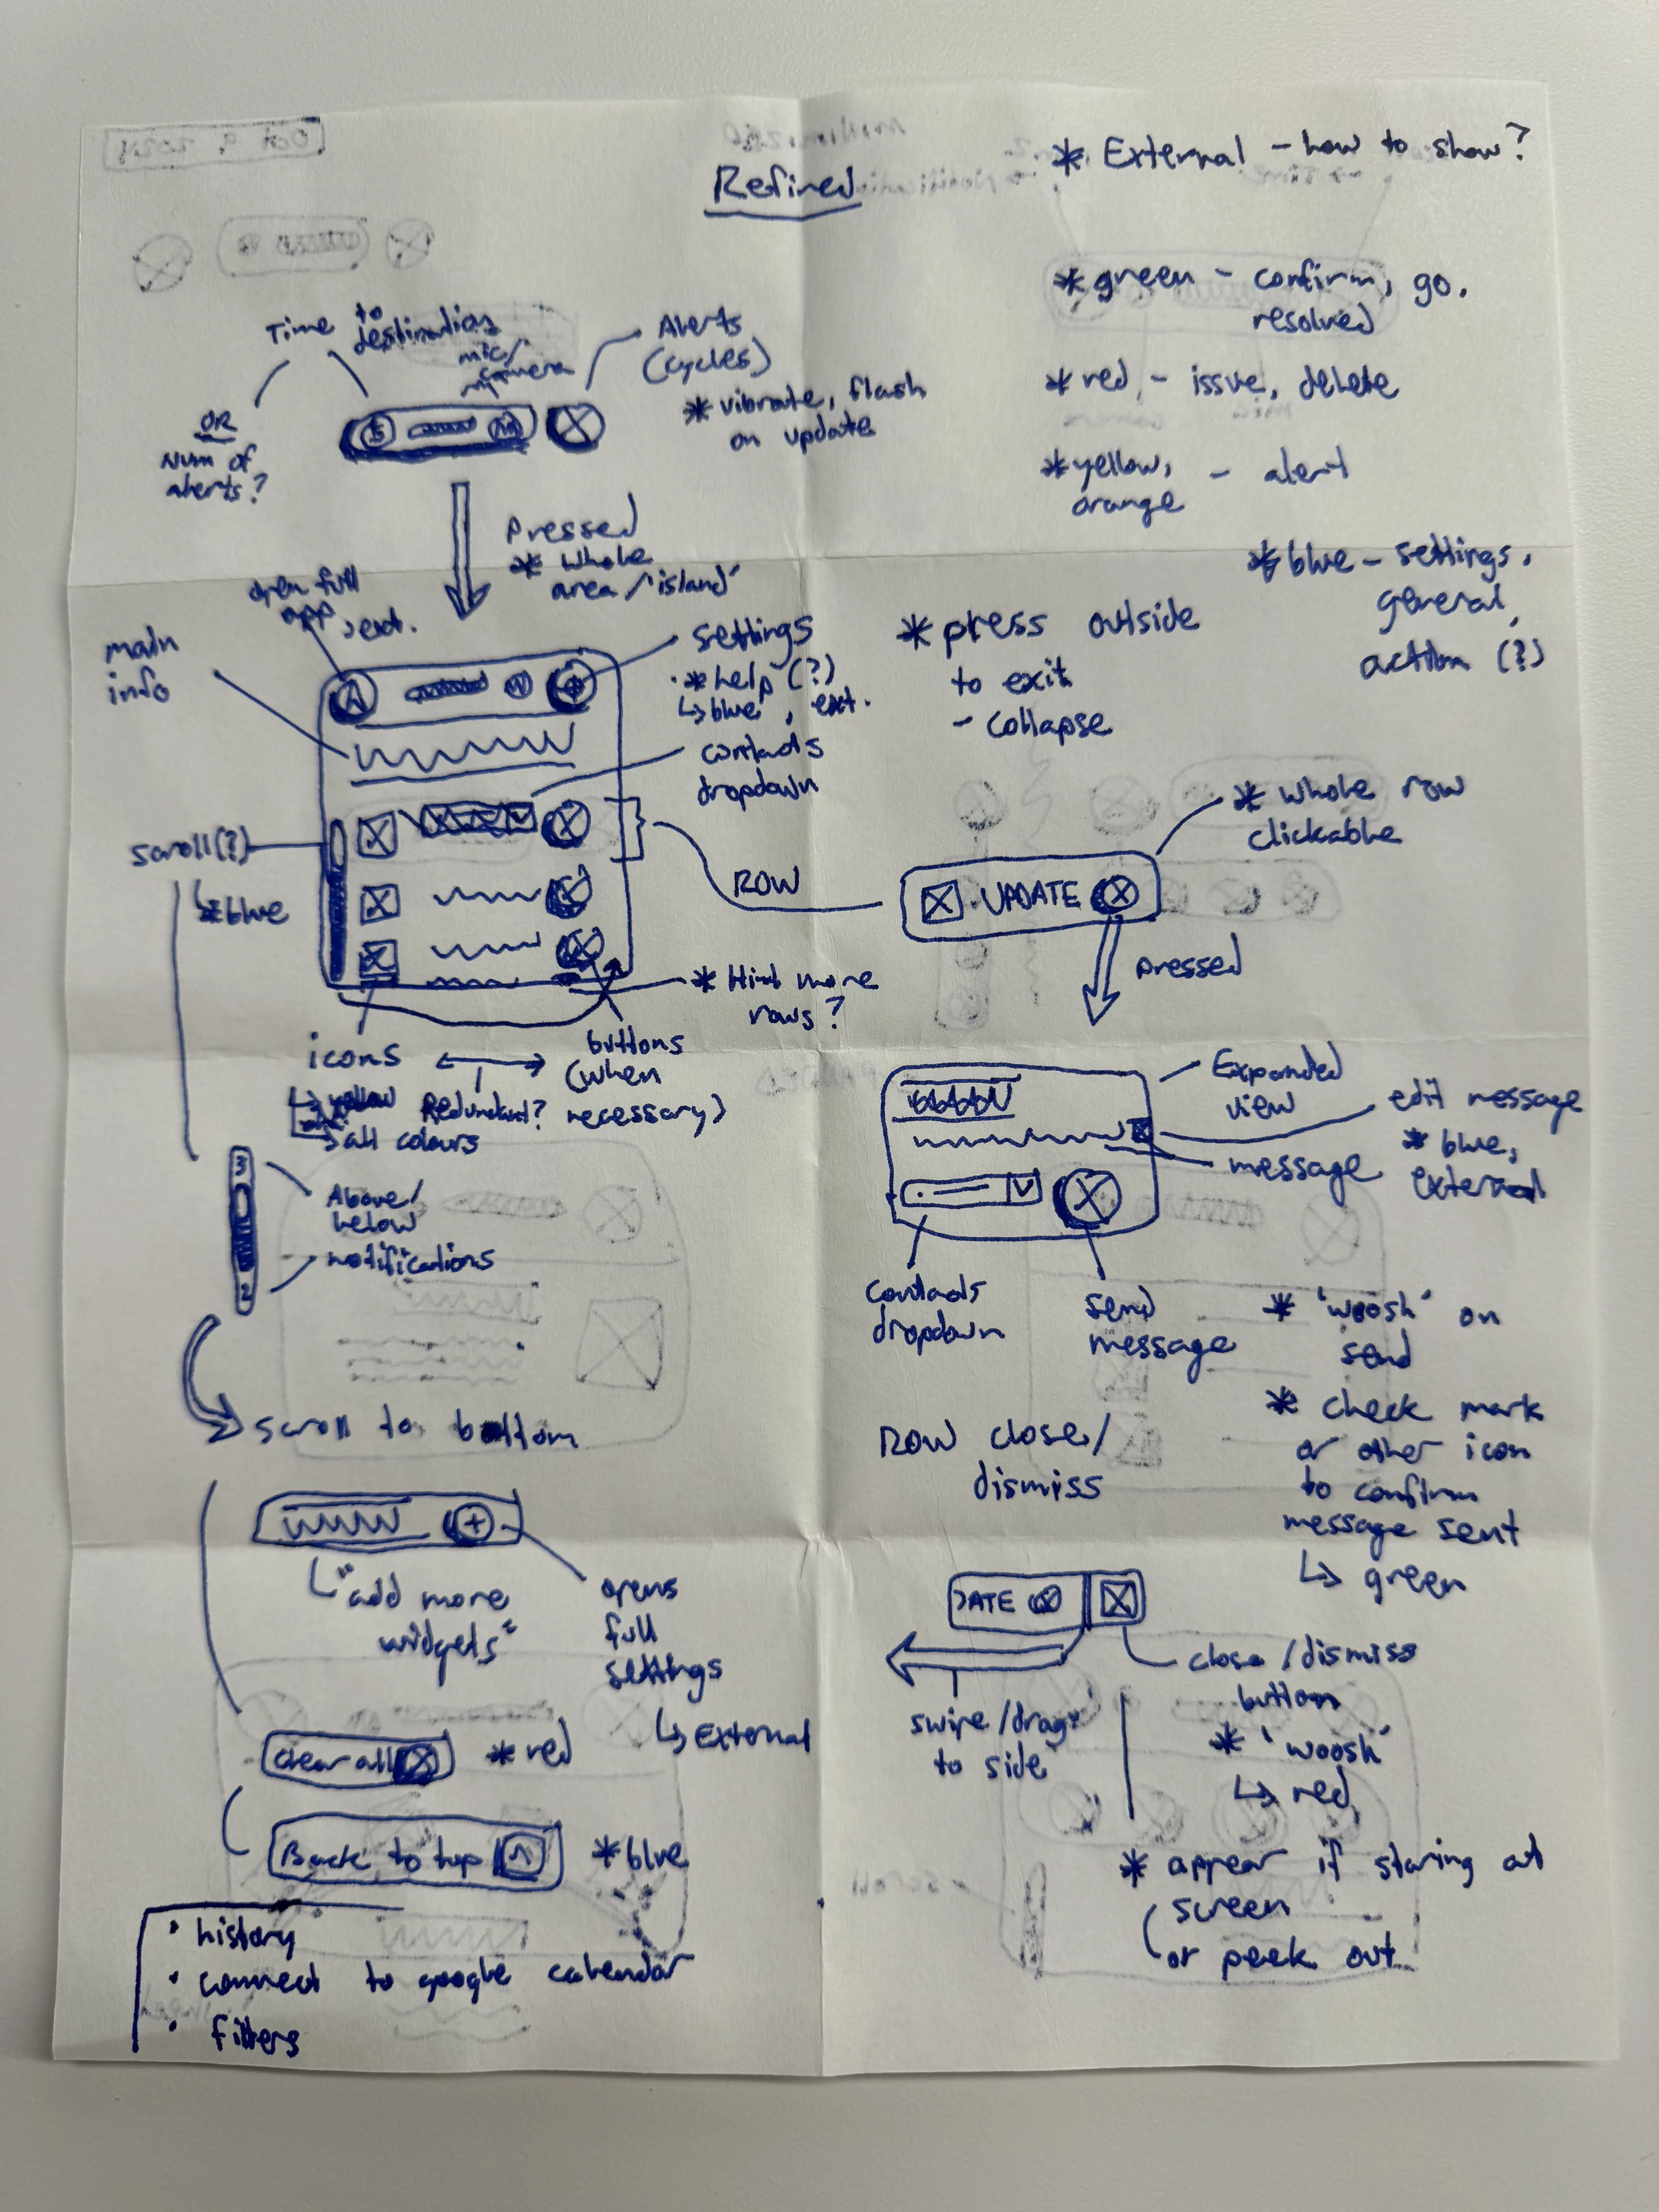 Refined
* External - how to show?
* green - confirm, go,
resolved
* red, - issue, delete
* yellow,
orange - alert
* blue - settings,
general,
action (?)
Time to
destination
mic/
camera
OR
Num of
alerts?
Alerts
(cycles)
* vibrate, flash
on update
Pressed
* Whole
area/'island'
open full
app, ext.
main
info
settings
* help (?)
↳ blue, ext.
contacts
dropdown
scroll(?)
↳ * blue
ROW
* Hint more
rows?
icons
↳ yellow
→ all colours
Redundant?
buttons
(when
necessary)
* press outside
to exit
- collapse
* Whole row
clickable
UPDATE
pressed
Expanded
view
edit message
* blue,
external
message
contacts
dropdown
send
message
* 'woosh' on
send
* check mark
or other icon
to confirm
message sent
↳ green
3
2
Above/
below
notifications
scroll to bottom
"add more
widgets"
+
opens
full
settings
↳ External
clear all
* red
Back to top
* blue
• history
• connect to google calendar
• filters
ROW close/
dismiss
DATE
close/dismiss
button
* 'woosh'
↳ red
swipe/drag
to side
* appear if staring at
screen
or peek out
Oct 9, 2024